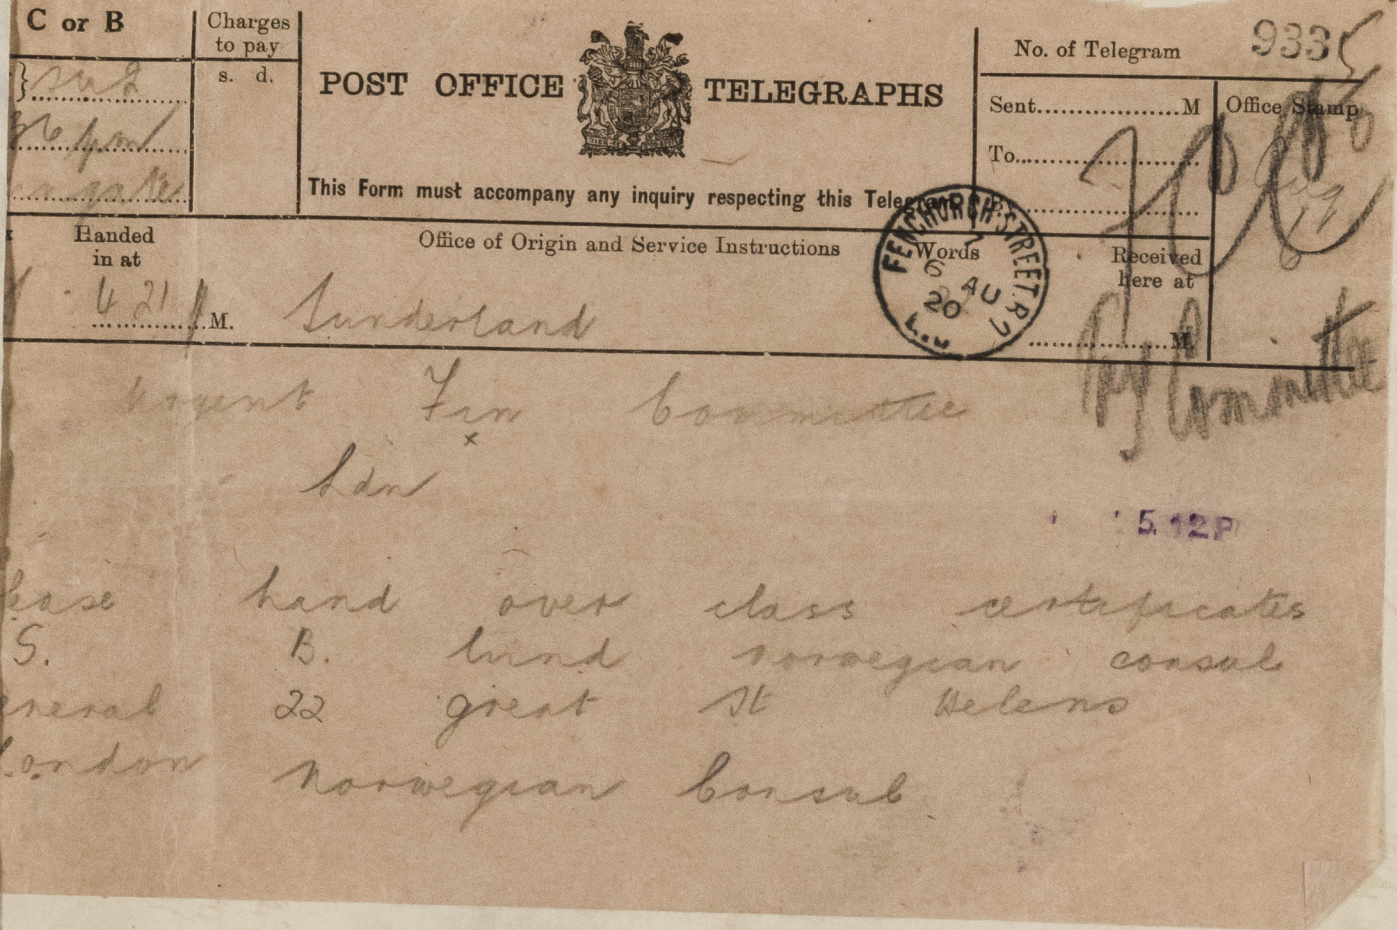 C or B
Charges
to pay
s. d.
POST OFFICE TELEGRAPHS
This Form must accompany any inquiry respecting this Telegram
No. of Telegram 9335
Sent M
To
Office Stamp
Handed
in at
4 21 M.
Office of Origin and Service Instructions
Words
Received
here at
M
Sunderland
FENCHURCH STREET. B.O.
6 AU
20
By Committee
Urgent Fin Committee
x
Ldn
5.12P
lease hand over class certificates
S. B. Lund Norwegian consul
eneral 22 great St Helens
London Norwegian Consul